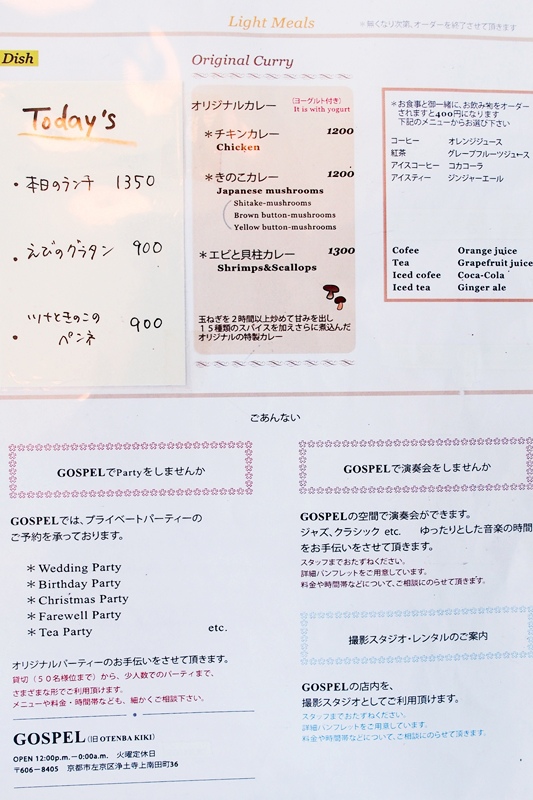 Light Meals
*無くなり次第、オーダーを終了させて頂きます
Dish
Today's
・本日のランチ 1350
・えびのグラタン 900
・ツナときのこの
ペンネ 900
Original Curry
オリジナルカレー (ヨーグルト付き)
It is with yogurt
＊チキンカレー 1200
Chicken
＊きのこカレー 1200
Japanese mushrooms
Shitake-mushrooms
Brown button-mushrooms
Yellow button-mushrooms
＊エビと貝柱カレー 1300
Shrimps&Scallops
玉ねぎを２時間以上炒めて甘みを出し
１５種類のスパイスを加えさらに煮込んだ
オリジナルの特製カレー
＊お食事と御一緒に、お飲み物をオーダー
されますと400円になります
下記のメニューからお選び下さい
コーヒー オレンジジュース
紅茶 グレープフルーツジュース
アイスコーヒー コカコーラ
アイスティー ジンジャーエール
Cofee Orange juice
Tea Grapefruit juice
Iced cofee Coca-Cola
Iced tea Ginger ale
ごあんない
GOSPELでPartyをしませんか
GOSPELでは、プライベートパーティーの
ご予約を承っております。
＊Wedding Party
＊Birthday Party
＊Christmas Party
＊Farewell Party
＊Tea Party etc.
オリジナルパーティーのお手伝いをさせて頂きます。
貸切（５０名様位まで）から、少人数でのパーティまで、
さまざまな形でご利用頂けます。
メニューや料金・時間帯なども、細かくご相談下さい。
GOSPEL (旧 OTENBA KIKI)
OPEN 12:00p.m.−0:00a.m. 火曜定休日
〒606−8405 京都市左京区浄土寺上南田町36
GOSPELで演奏会をしませんか
GOSPELの空間で演奏会ができます。
ジャズ、クラシック etc. ゆったりとした音楽の時間
をお手伝いをさせて頂きます。
スタッフまでおたずねください。
詳細パンフレットをご用意しています。
料金や時間帯などについて、ご相談にのらせて頂きます。
撮影スタジオ・レンタルのご案内
GOSPELの店内を、
撮影スタジオとしてご利用頂けます。
スタッフまでおたずねください。
詳細パンフレットをご用意しています。
料金や時間帯などについて、ご相談にのらせて頂きます。